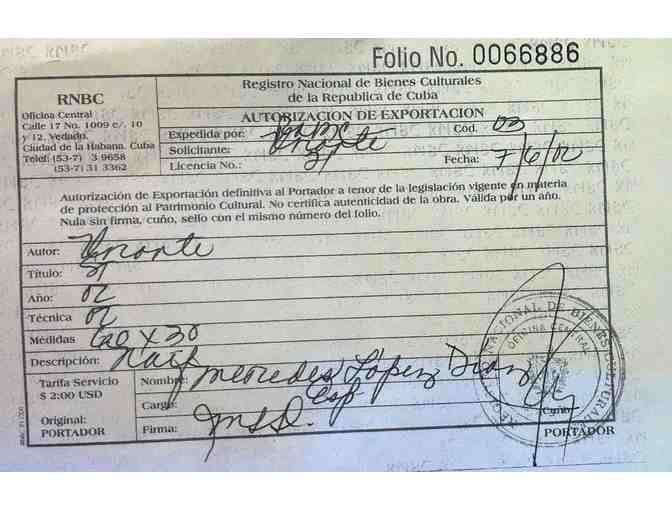 Folio No. 0066886
RNBC
Oficina Central
Calle 17 No. 1009 e/. 10
y 12, Vedado,
Ciudad de la Habana, Cuba
Telef: (53-7) 3 9658
(53-7) 31 3362
Registro Nacional de Bienes Culturales
de la Republica de Cuba
AUTORIZACION DE EXPORTACION
Expedida por: RNBC Cód. 03
Solicitante:
Licencia No.: Fecha: 7/6/02
Autorización de Exportación definitiva al Portador a tenor de la legislación vigente en materia
de protección al Patrimonio Cultural. No certifica autenticidad de la obra. Válida por un año.
Nula sin firma, cuño, sello con el mismo número del folio.
Autor:
Título:
Año: 02
Técnica
Médidas 60 x 30
Descripción:
Tarifa Servicio
$ 2:00 USD
Nombre: Mercedes López Díaz
Cargo: Esp
Firma:
Cuño
Original:
PORTADOR
PORTADOR
OFICINA CENTRAL